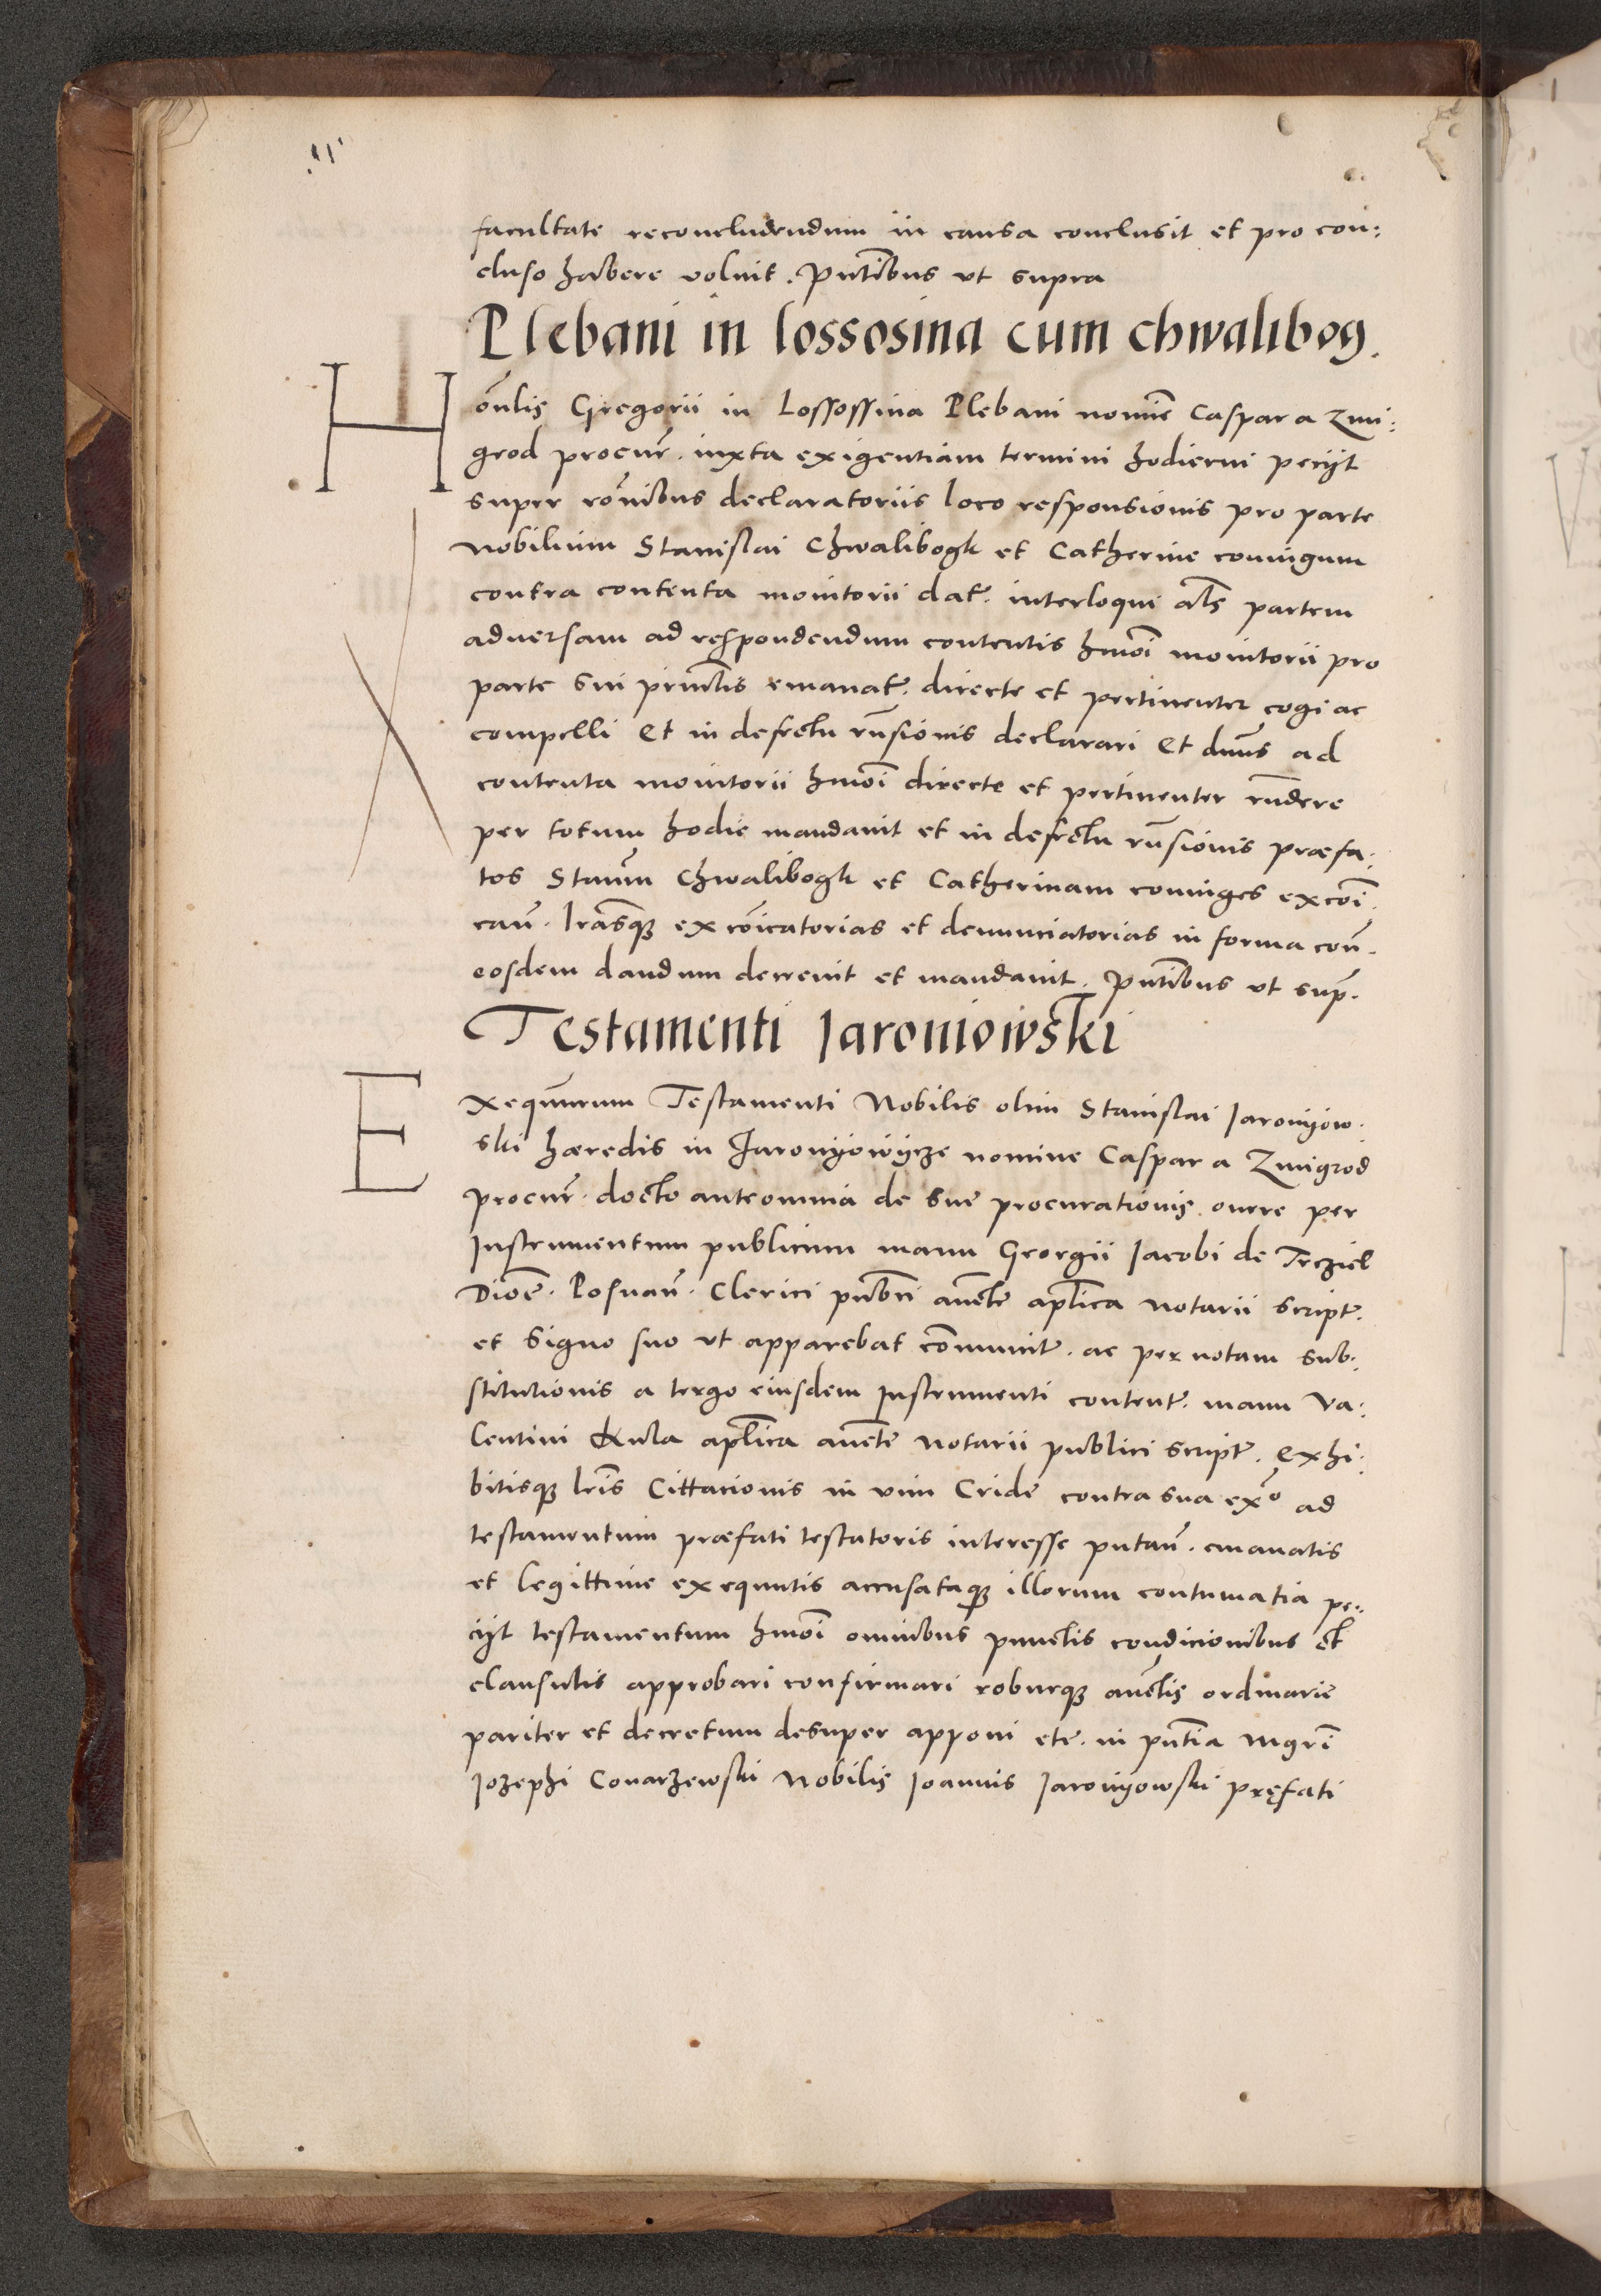 facultate reconcludendum in causa conclusit et pro con:
cluso habere voluit. Pntibus vt supra
Plebani in lossosina cum chwalibog.
Honlis Gregorii in Lossossina Plebani nomine Caspar a Zmi:
grod procur. iuxta exigentiam termini hodierni petijt
super ronibus declaratoriis loco responsionis pro parte
Nobilium Stanislai Chwalibogk et Catherine coniugum
contra contenta monitorii dat. interloqui als partem
aduersam ad respondendum contentis hmoi monitorii pro
parte sui princlis emanat. directe et pertinenter cogi ac
compelli Et in defectu rnsionis declarari Et dnus ad
contenta monitorii hmoi directe et pertinenter rndere
per totum hodie mandauit et in defectu rnsionis præfa:
tos Stanm Chwalibogk et Catherinam coniuges excoi.
can. lrasque excoicatorias et denunciatorias in forma con.
eosdem dandum decreuit et mandauit. Pntibus vt sup.
Testamenti Iaroniowski
Exequutorum Testamenti Nobilis olim Stanislai Iaronyow.
ski hæredis in Jaronyowycze nomine Caspar a Zmigrod
procur. docto anteomnia de sue procurationis onere per
Instrumentum publicum manu Georgii Iacobi de Trcziel
Dioe. Posnan. Clerici publici aucte aplica notarii script.
et signo suo vt apparebat communit. ac per notam sub:
stitutionis a tergo eiusdem Instrumenti content. manu Va:
lentini Kula aplica aucte Notarii publici script. Exhi:
bitisque lris Cittacionis in vim Cride contra sua exo ad
testamentum præfati testatoris interesse putan. emanatis
et legittime exequutis accusataque illorum contumatia pe:
cijt testamentum hmoi omnibus punctis condicionibus et
clausulis approbari confirmari roburque auctis ordinarie
pariter et decretum desuper apponi etc. in pntia Mgri
Iozephi Conarzewski Nobilis Ioannis Iaronyowski pręfati